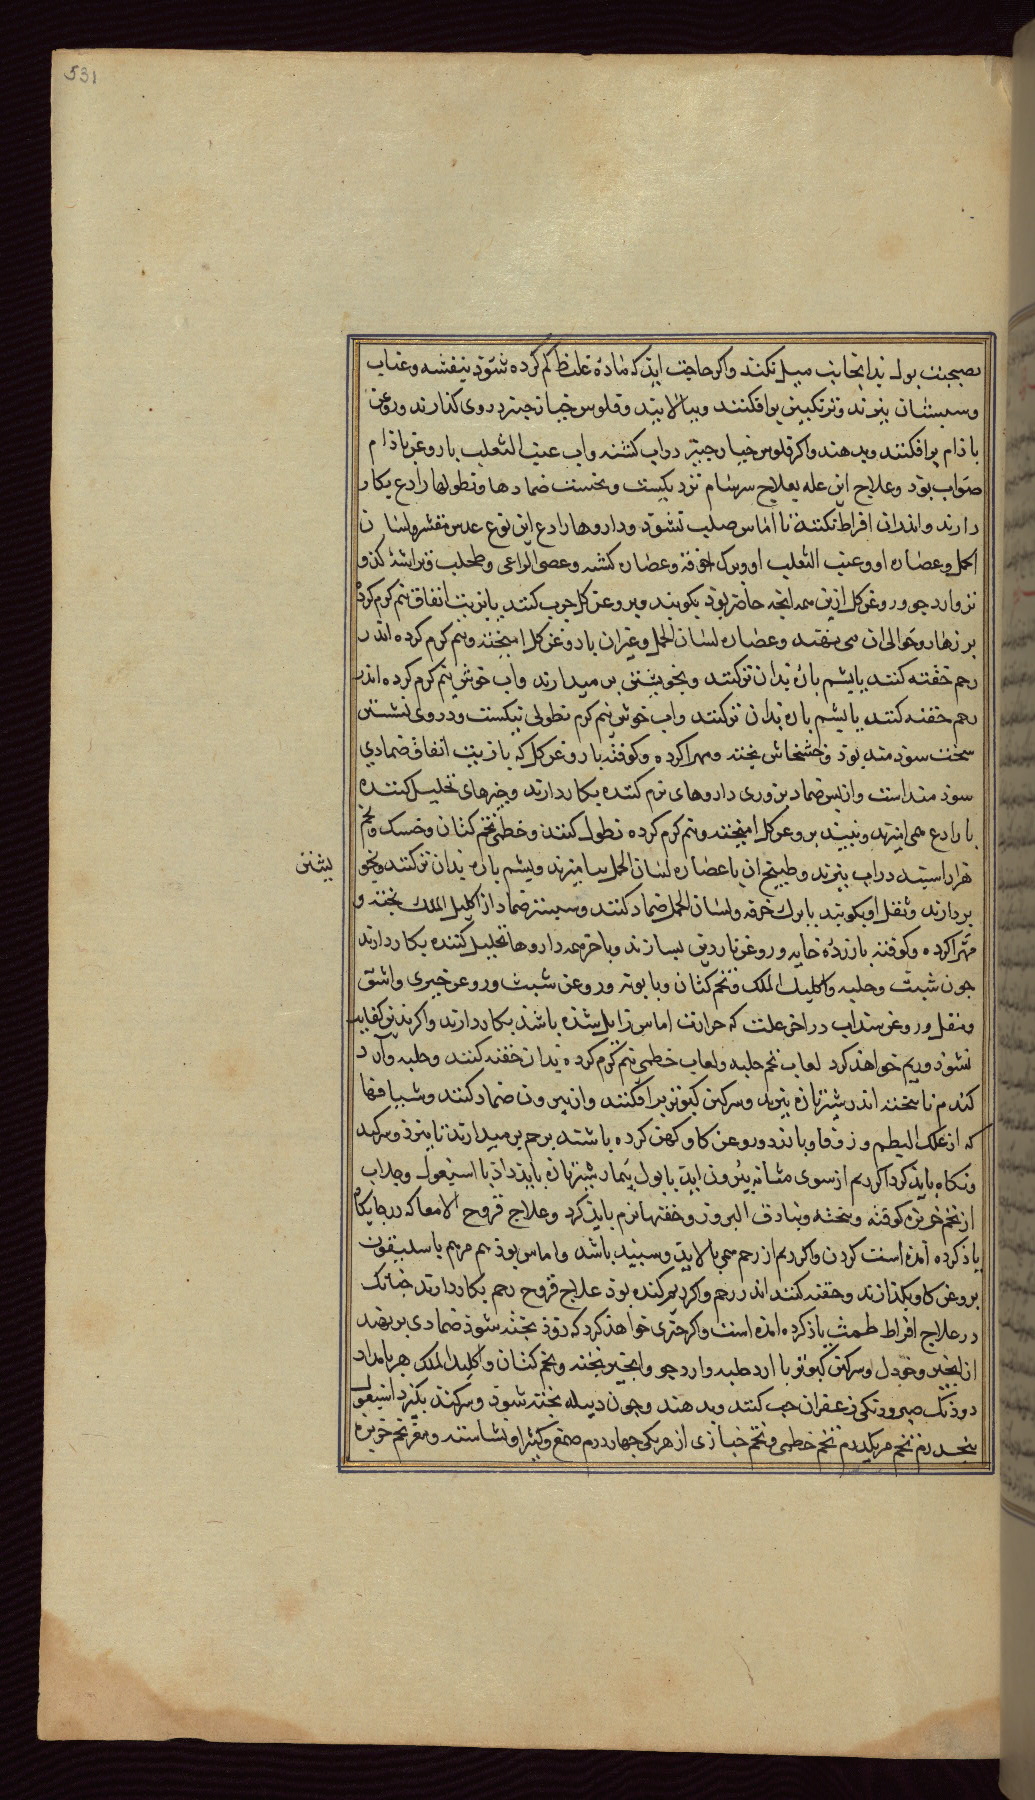 531
بول بدانجانب میل نکند واکر حاجت ایذ که ماده غلیظ کم کرده شوذ بنفشه وعناب
وسبستان بپزند وترنکبین برافکنند وبپالایند وفلوس خیارجنبر دروی کذارند وروغن
باذام برافکنند وبدهند واکر فلوس خیارجنبر دراب کشنه واب عنب الثعلب باروغن باذام
صواب بوذ وعلاج این عله بعلاج سرسام نزدیکست ونخست ضمادها ونطولها رادع بکار
دارند واندران افراط نکنند تا اماس صلب نشوذ وداروها رادع این نوع عدس مقشر ولسان
الحمل وعصاره او وعنب الثعلب او وبرک خرفه وعصاره کشنه وعصی الراعی وطحلب وتراشۀ کذو
تر وارد جو وروغن کل ازین همه انجه حاضر بوذ بکوبند وبروغن کل جرب کنند یا بزیت انفاق نیم کرم کرده
برزهار وحوالی ان می نهند وعصاره لسان الحمل وغیران با روغن کل امیخته ونیم کرم کرده اندر
رحم حقنه کنند یا پشم پاره بدان تر کنند وبخویشتن بر میدارند واب خوش نیم کرم کرده اندر
رحم حقنه کنند یا پشم پاره بدان تر کنند واب خوش نیم کرم نطولی نیکست ودروی نشستن
سخت سوذمند بوذ وخشخاش پخته ومهرا کرده وکوفته با روغن کل که با زیت انفاق ضمادی
سوذمند است وازپس ضماد بزوری داروهای نرم کننده بکار دارند وجیزهای تحلیل کننده
با رادع می امیزند وببیند بروغن کل امیخته ونیم کرم کرده نطول کنند وخطمی وتخم کتان وخسک وتخم
دراب بپزند وطبیخ ان با عصاره لسان الحمل بیامیزند وپشم پاره بدان تر کنند وبخو
یشتن
بردارند وثفل او بکوبند با برک خرفه ولسان الحمل ضماد کنند وسپستر ضماد از اکلیل الملک پخته و
مهرا کرده وکوفته با زردۀ خایه وروغن ناردین بسازند وباخر همه داروها تحلیل کننده بکار دارند
جون شبت وحلبه واکلیل الملک وتخم کتان وبابونه وروغن شبت وروغن خیری واشق
ومقل وروغن سنداب دراخر علت که حرارت اماس زایل شذه باشذ بکار دارند واکر بدین کفایت
نشوذ وریم خواهذ کرد لعاب تخم حلبه ولعاب خطمی نیم کرم کرده بدان حقنه کنند وحلبه وآرد
کندم نا پخته اندر شیر تازه بپزند وسرکین کبوتر برافکنند وازبیرون ضماد کنند وشیافها
که از علک البطم وزوفا وبارزد وروغن کاو کهن کرده باشند برحم بر میدارند تا بپزذ وسرکند
ونکاه بایذ کرد اکر ریم از سوی مثانه بیرون ایذ با بول بیمار شیر تازه بایذ داذ با اسپغول وجلاب
از تخم خربزه کوفته وپخته وبنادق البزور وحقنها نرم بایذ کرد وعلاج قروح الامعا که درجایکاه
یاذ کرده آمذه است کردن واکر ریم از رحم می پالایذ وسپیذ باشذ واماس بوذ هم مرهم باسلیقون
بروغن کاو بکذازند وحقنه کنند اندر رحم واکر ریم کنده بوذ علاج قروح رحم بکار دارند جنانک
در علاج افراط طمث یاذ کرده امذه است واکر جیزی خواهذ کرد که زوذ پخته شوذ ضمادی بر نهند
از انجیر وخردل وسرکین کبوتر با ارد حلبه وارد جو وانجیر پخته وتخم کتان واکلیل الملک هر بامداد
دو دنک صبر ودنکی زعفران حب کنند وبدهند وجون دبیله پخته شوذ وسرکنذ بکیرند اسپغول
پنجدرم تخم مر یکدرم تخم خطمی وتخم خبازی از هر یکی جهاردرم صمغ وکثیرا ونشاسته ومغز تخم خربزه